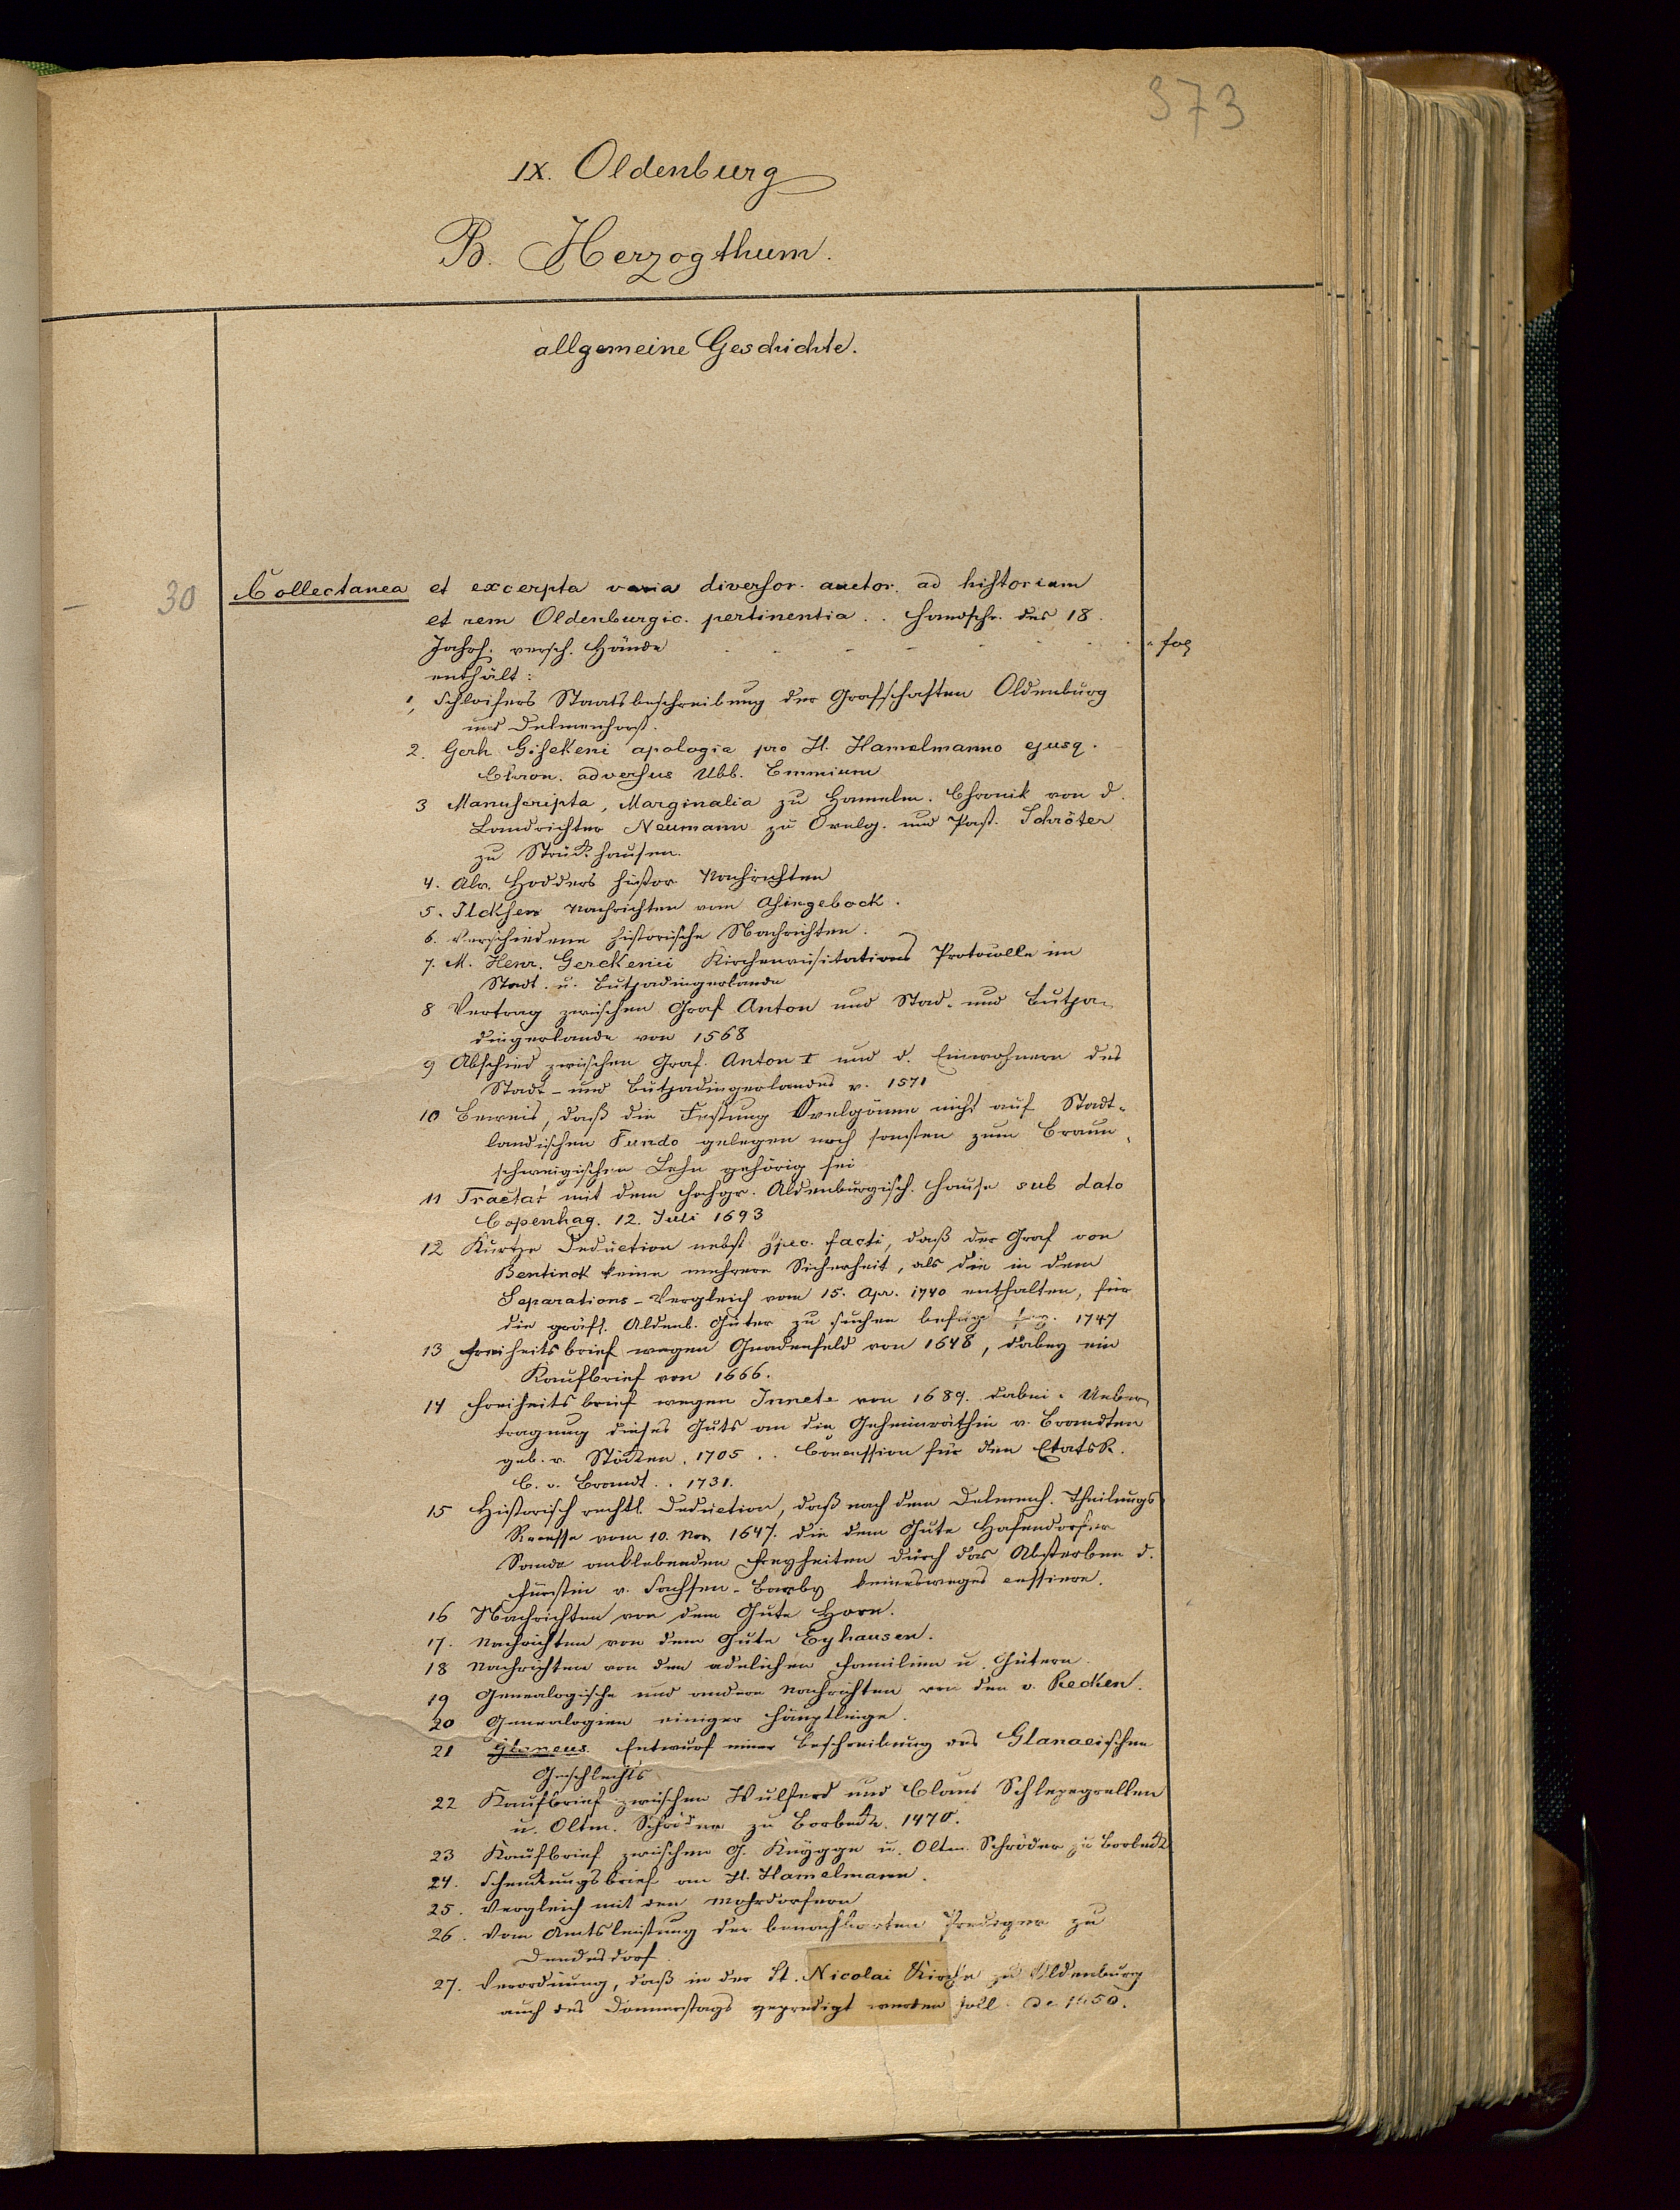 373
IX. Oldenburg
B. Herzogthum.
allgemeine Geschichte.
– 30 Collectanea et excerpta varia diversor. auctor. ad historiam
et rem Oldenburgic. pertinentia. . Handschr. des 18.
Jahrh. versch. Hände - - - - - fol
enthält:
1, Schloifers Staatsbeschreibung der Grafschaften Oldenburg
und Delmenhorst.
2. Gerh Gisekeni apologia pro H. Hamelmanno ejusq.
Chron. adversus Ubb. Emmium
3 Manuscripta, Marginalia zu Hamelm. Chronik von d.
Landrichter Neumann zu Ovelg. und Past. Schröter
zu Strückhausen.
4. Alr. Hodders histor Nachrichten
5. Ilcksen Nachrichten vom Ahingebock.
6. Verschiedene historische Nachrichten.
7. M. Henr. Gerckenii Kirchenvisitations Protocolle im
Stadt. u. Butjadingerlande
8 Vertrag zwischen Graf Anton und Stad- und Butja-
dingerlande von 1568
9 Abschied zwischen Graf. Anton I und d. Einwohnern des
Stadt- und Butjadingerlandes v. 1571
10 Beweis, daß die Festung Ovelgönne nicht auf Stadt-
landischen Fundo gelegen noch sonsten zum Braun-
schweigischen Lehn gehörig sei
11 Tractat mit dem Hochgr. Aldenburgisch. Hause sub dato
Copenhag. 12. Juli 1693
12 Kurtze Deduction nebst spec. facti, daß der Graf von
Bentinck keine mehrere Sicherheit, als die in dem
Separations-Vergleich vom 15. Apr. 1740 enthalten, für
die gräfl. Aldenb. Güter zu suchen befugt sey. 1747
13 Freiheitsbrief wegen Gnadenfeld von 1648, dabey ein
Kaufbrief von 1666.
14 Freiheitsbrief wegen Innete von 1689. dabei: Ueber-
tragung dieses Guts an die Geheimräthin v. Brandten
geb. v. Stöcken. 1705 . . Concession für den EtatsR.
C. v. Brandt. . 1731.
15 Historisch rechtl. Deduction, daß nach dem Delmenh. Theilungs
Recesse vom 10. Nov 1647. die dem Gute Hafendorfer
Sande anklebenden Freyheiten durch das Absterben d.
Fürstin v. Sachsen-Barby keinesweges cessiere.
16 Nachrichten von dem Gute Horn.
17. Nachrichten von dem Gute Eyhausen.
18 Nachrichten von den adelichen Familien u. Gütern.
19 Genealogische und andere Nachrichten von den v. Recken.
20 Genealogien einiger Häuptlinge.
21 Glaneus. Entwurf einer Beschreibung des Glanaeischen
Geschlechts
22 Kaufbrief zwischen Wulferd und Claus Schlepegrellen
u. Oltm. Schröder zu Borbeck. 1470.
23 Kaufbrief zwischen G. Knygge u. Oltm. Schröder zu Borbeck
24. Schenkungsbrief an H. Hamelmann.
25. Vergleich mit den Mohrdorfern
26. Vom Amtsleistung der benachbarten Prediger zu
Dedesdorf
27. Verordnung, daß in der St. Nicolai Kirche zu Oldenburg
auch des Donnerstags gepredigt werden soll. de 1650.